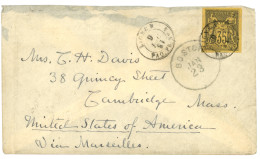 Mrs. C. H. Davis
38 Quincy Street
Cambridge Mass.
United States of America
Via Marseilles.
BOSTON
JAN
23
35